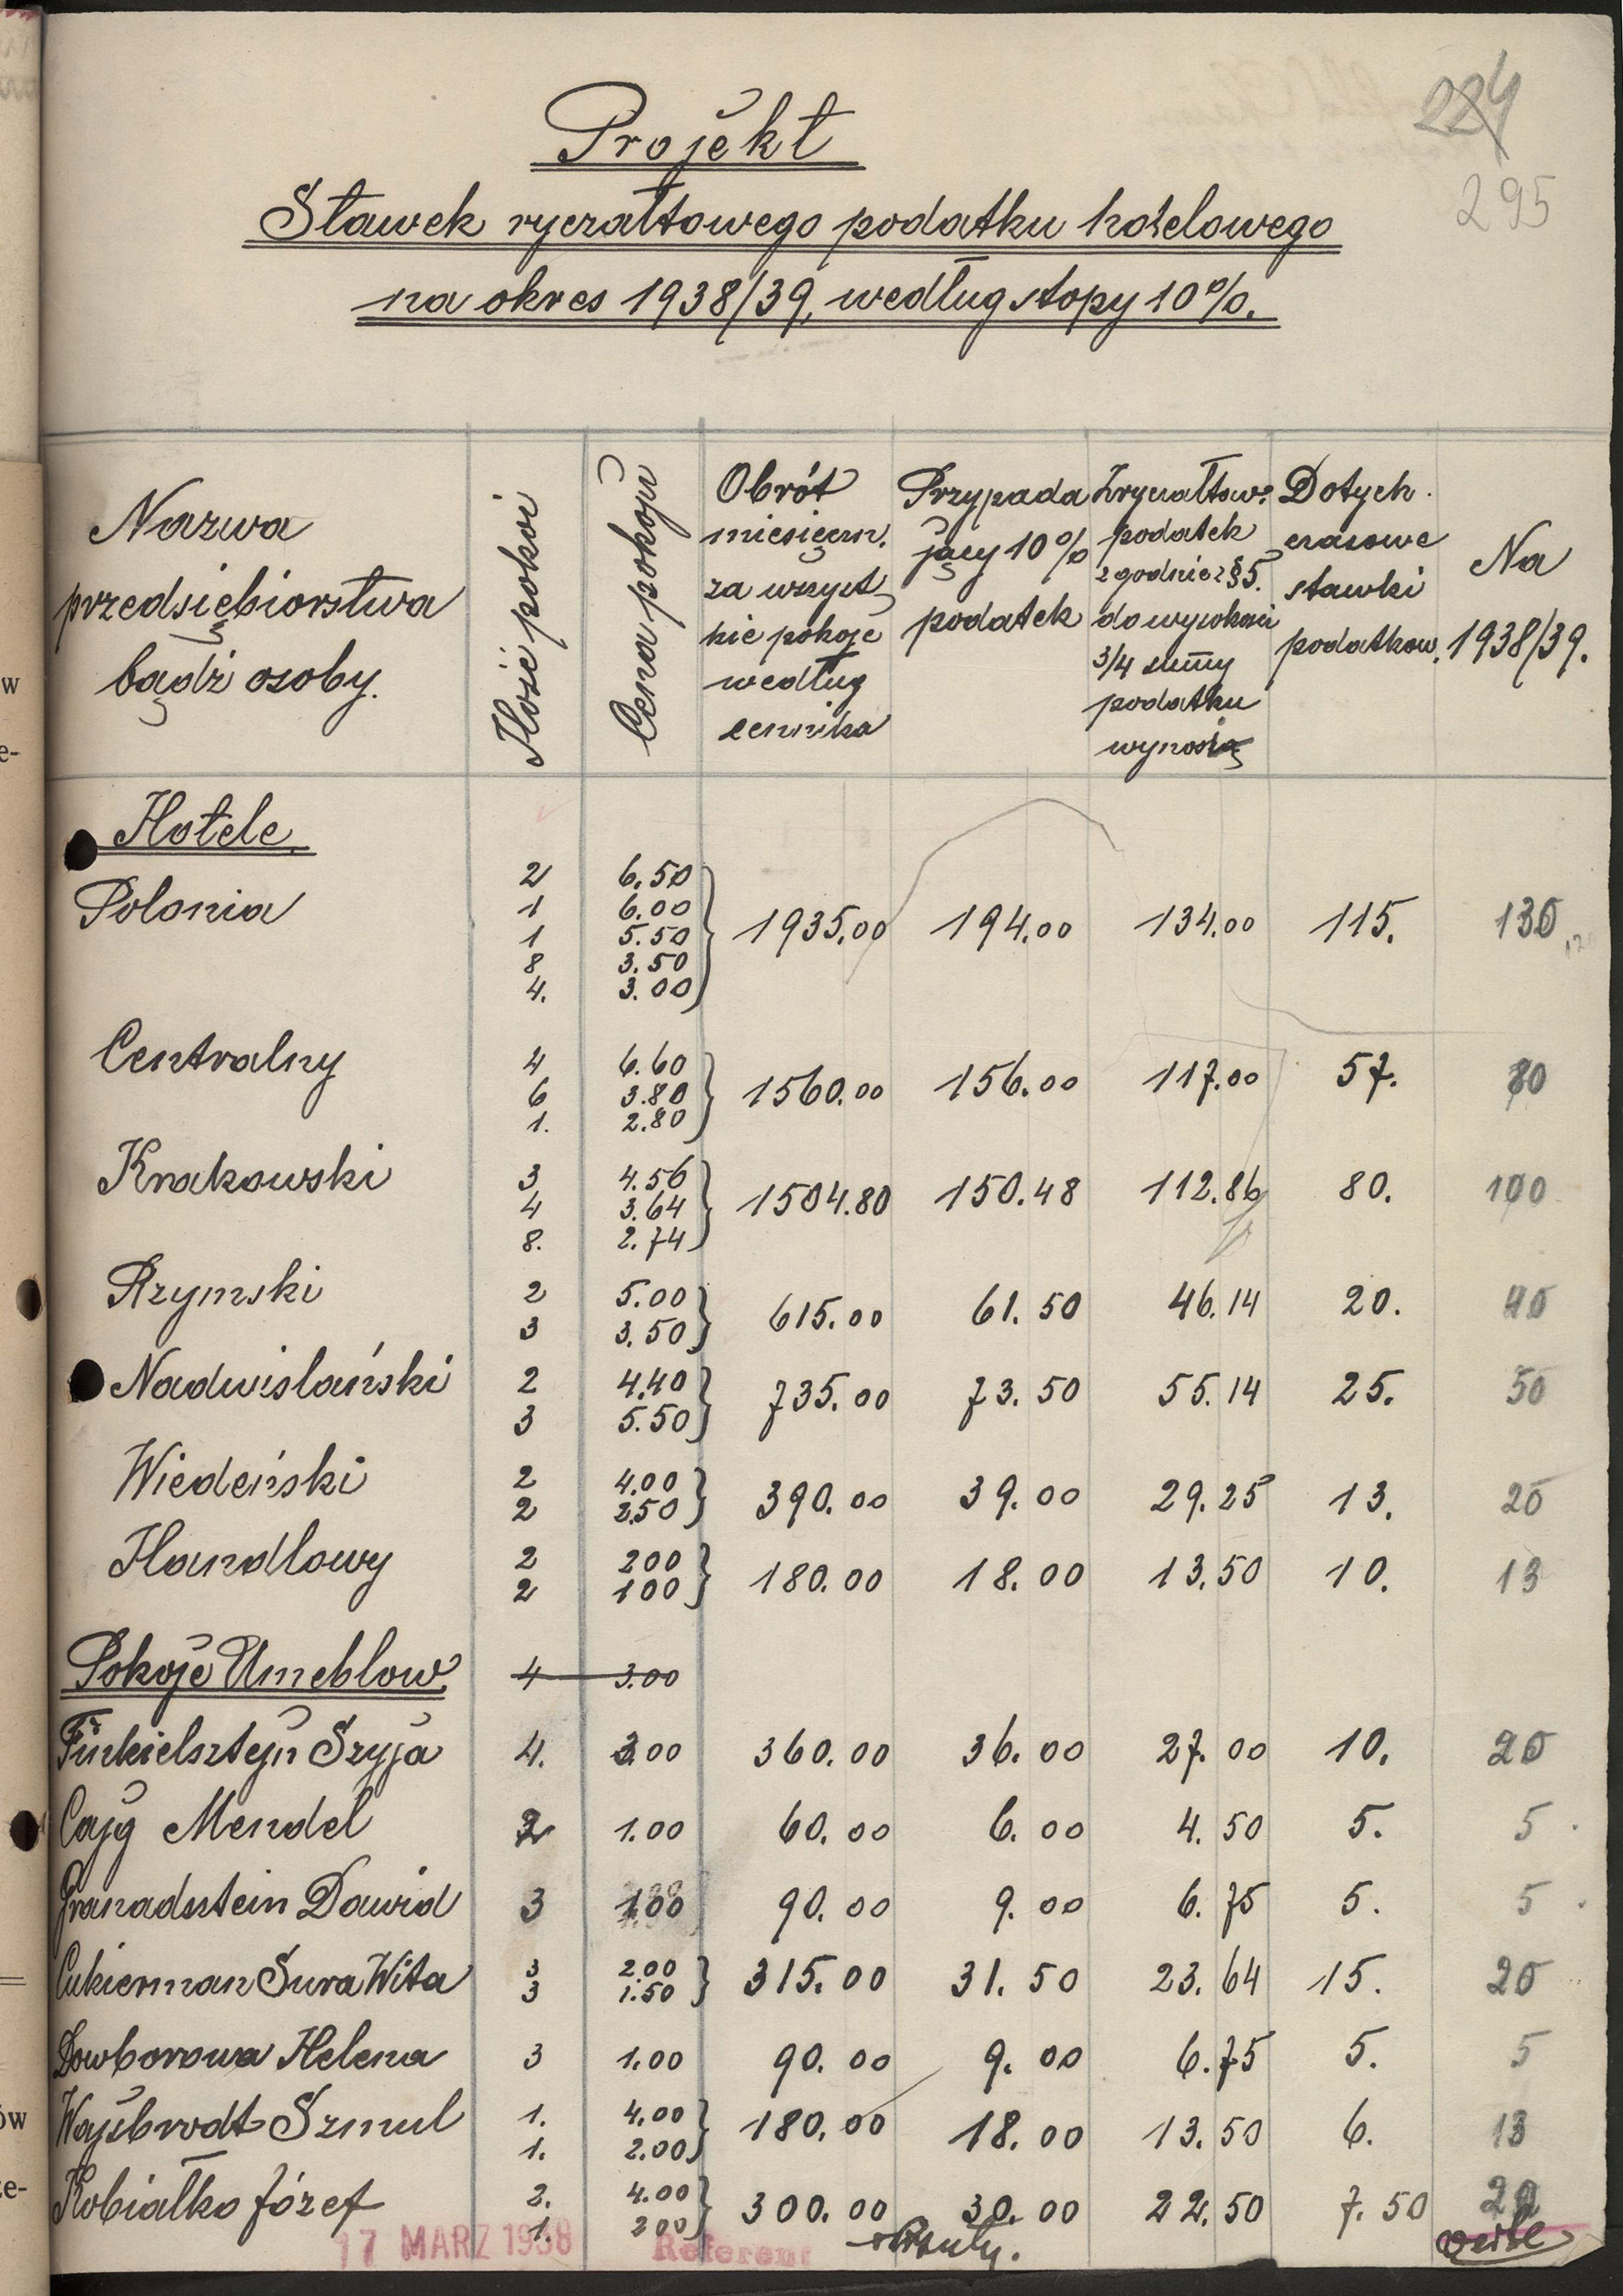 224
295
Projekt
Stawek ryczałtowego podatku hotelowego
na okres 1938/39, według stopy 10%.
Nazwa przedsiębiorstwa bądź osoby.
Ilość pokoi
Cena pokoju
Obrót miesięczn. za wszyst kie pokoje według cennika
Przypada jący 10% podatek
Zryczałtow. podatek zgodnie z § 5. do wysokości 3/4 sumy podatku wynosi
Dotych czasowe stawki podatkow.
Na 1938/39.
Hotele.
2 6.50
Polonia 1 6.00
1 5.50 1935.00 194.00 134.00 115. 130
8 3.50
4. 3.00
Centralny 4 6.60
6 3.80 1560.00 156.00 117.00 57. 80
1. 2.80
Krakowski 3 4.56
4 3.64 1504.80 150.48 112.86 80. 100
8. 2.74
Rzymski 2 5.00 615.00 61.50 46.14 20. 40
3 3.50
Nadwislański 2 4.40 735.00 73.50 55.14 25. 50
3 5.50
Wiedeński 2 4.00 390.00 39.00 29.25 13. 20
2 2.50
Handlowy 2 200 180.00 18.00 13.50 10. 13
2 100
Pokoje Umeblow. 4 3.00
Finkielsztejn Szyja 4. 3.00 360.00 36.00 27.00 10. 20
Cajg Mendel 2 1.00 60.00 6.00 4.50 5. 5
Granadsztein Dawid 3 1.00 90.00 9.00 6.75 5. 5
Cukierman Sura Wita 3 2.00 315.00 31.50 23.64 15. 20
3 1.50
Dowborowa Helena 3 1.00 90.00 9.00 6.75 5. 5
Wajsbrodt Szmul 1. 4.00 180.00 18.00 13.50 6. 13
1. 2.00
Kobiałko Józef 2. 4.00 300.00 30.00 22.50 7.50 20
1. 200
17 MARZ 1938
Referent
verte
w
e-
ów
ze-